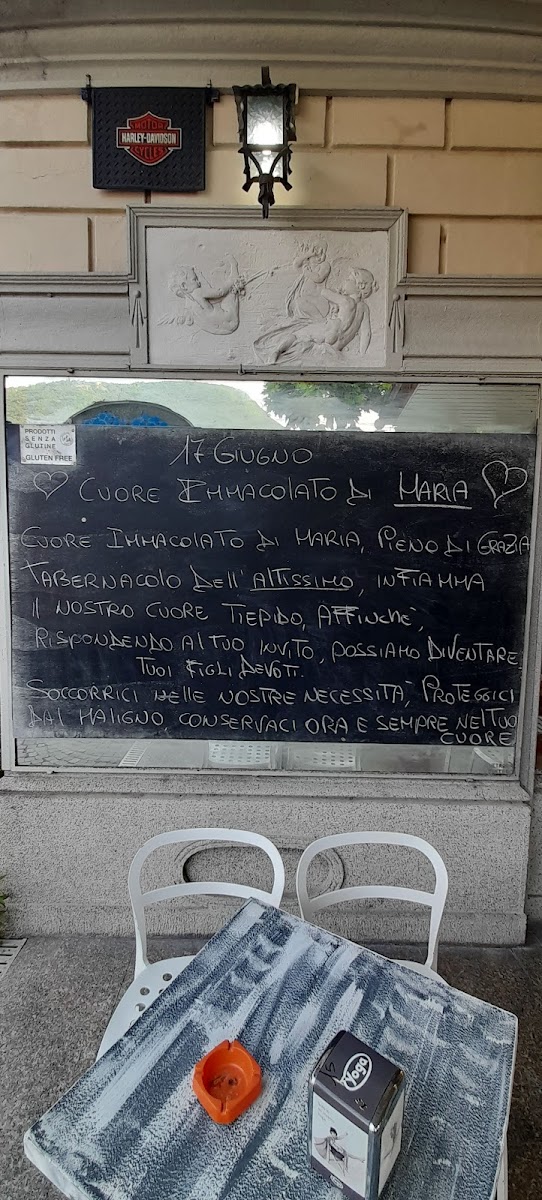 MOTOR
HARLEY-DAVIDSON
CYCLES
PRODOTTI
SENZA
GLUTINE
GLUTEN FREE
17 GIUGNO
CUORE IMMACOLATO DI MARIA
CUORE IMMACOLATO DI MARIA, PIENO DI GRAZIA
TABERNACOLO DELL'ALTISSIMO, INFIAMMA
IL NOSTRO CUORE TIEPIDO, AFFINCHÈ,
RISPONDENDO AL TUO INVITO, POSSIAMO DIVENTARE
TUOI FIGLI DEVOTI.
SOCCORRICI NELLE NOSTRE NECESSITÀ, PROTEGGICI
DAL MALIGNO, CONSERVACI ORA E SEMPRE NEL TUO
CUORE
Yoga